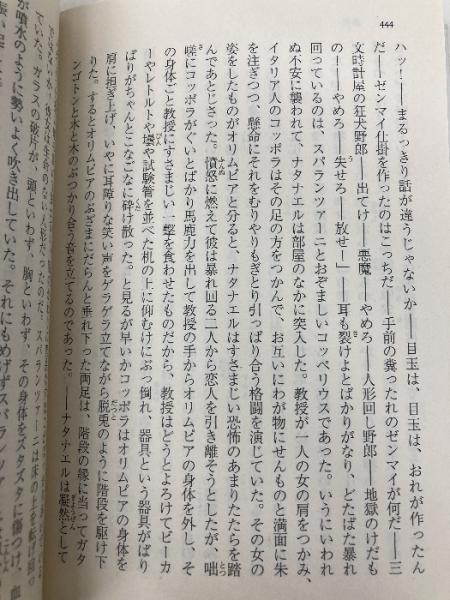 444
ハッ!――まるっきり話が違うじゃないか――目玉は、目玉は、おれが作ったん
だ――ゼンマイ仕掛を作ったのはこっちだ――手前の糞ったれのゼンマイが何だ――三
文時計屋の狂犬野郎――出てけ――悪魔――やめろ――人形回し野郎――地獄のけだも
の!――やめろ――失せろ――放せ!」――耳も裂けよとばかりがなり、どたばた暴れ
回っているのは、スパランツァーニとおぞましいコッペリウスであった。いうにいわれ
ぬ不安に襲われて、ナタナエルは部屋のなかに突入した。教授が一人の女の肩をつかみ、
イタリア人のコッポラはその足の方をつかんで、お互いにわが物にせんものと満面に朱
を注ぎつつ、懸命にそれをむりやりもぎとり引っぱり合う格闘を演じていた。その女の
姿をしたものがオリムピアと分ると、ナタナエルはすさまじい恐怖のあまりたたらを踏
んであとじさった。憤怒に燃えて彼は暴れ回る二人から恋人を引き離そうとしたが、咄
嗟にコッポラがぐいとばかり馬鹿力を出して教授の手からオリムピアの身体を外し、そ
の身体ごと教授にすさまじい一撃を食わせたものだから、教授はどうとよろけてビーカ
ーやレトルトや壜や試験管を並べた机の上に仰むけにぶっ倒れ、器具という器具がばり
ばりがちゃんとこなごなに砕け散った。と見るが早いかコッポラはオリムピアの身体を
肩に担ぎ上げ、いやに耳障りな笑い声をゲラゲラ立てながら脱兎のように階段を駆け下
りた。するとオリムピアのぶざまにだらんと垂れ下った両足は、階段の縁に当ってガタ
ンゴトンと木と木のぶつかり合う音を立てるのであった。――ナタナエルは凝然として
スパランツァーニは床の上を転げ回っ
ていた。ガラスの破片が、頭といわず、胸といわず、その身体をズタズタに傷つけ、血
が噴水のように勢いよく吹き出していた。それにもめげずスパランツァ